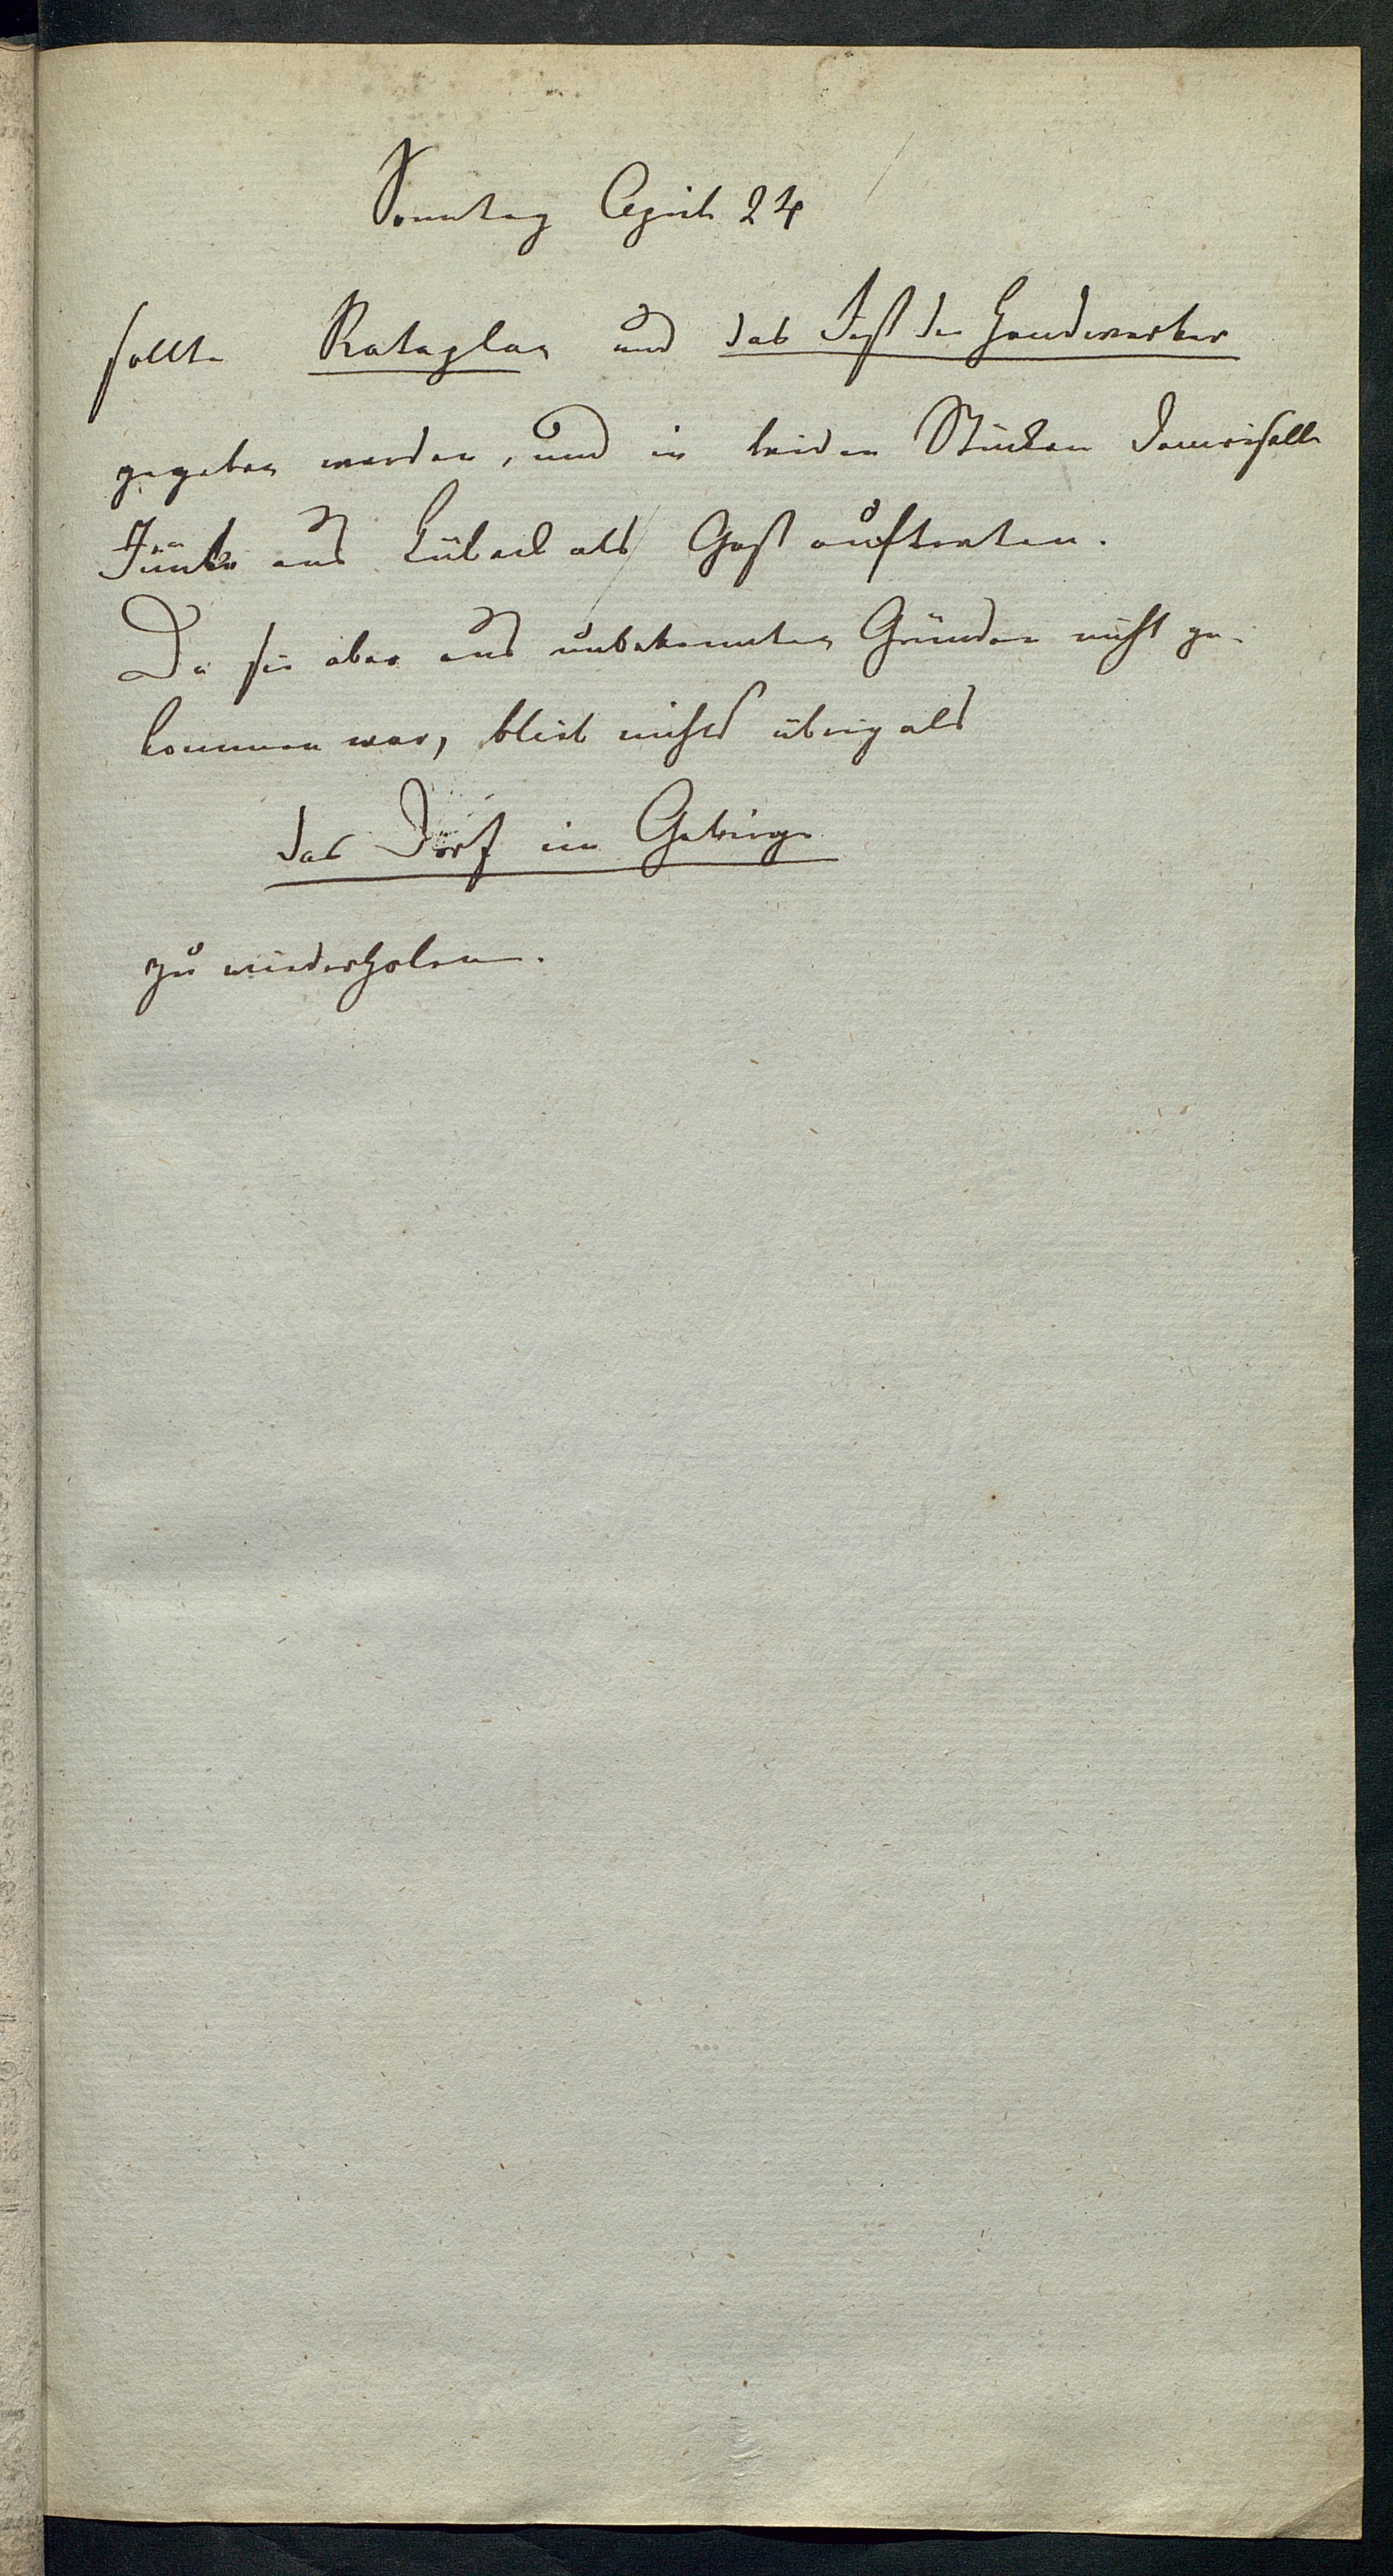 Sonntag April 24
sollte Rataplan und das Fest der Handwerker
gegeben werden, und in beiden Stücken Demoiselle
aus Lübeck als Gast auftreten.
Da sie aber aus unbekannten Gründen nicht ge-
kommen war, blieb nichts übrig als
das Dorf im Gebirge
zu wiederholen.